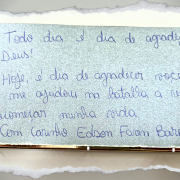 Todo dia é dia de agrade
Deus!
Hoje, é dia de agradecer você
me ajudou na batalha a re
começar minha vida.
Com carinho Edson